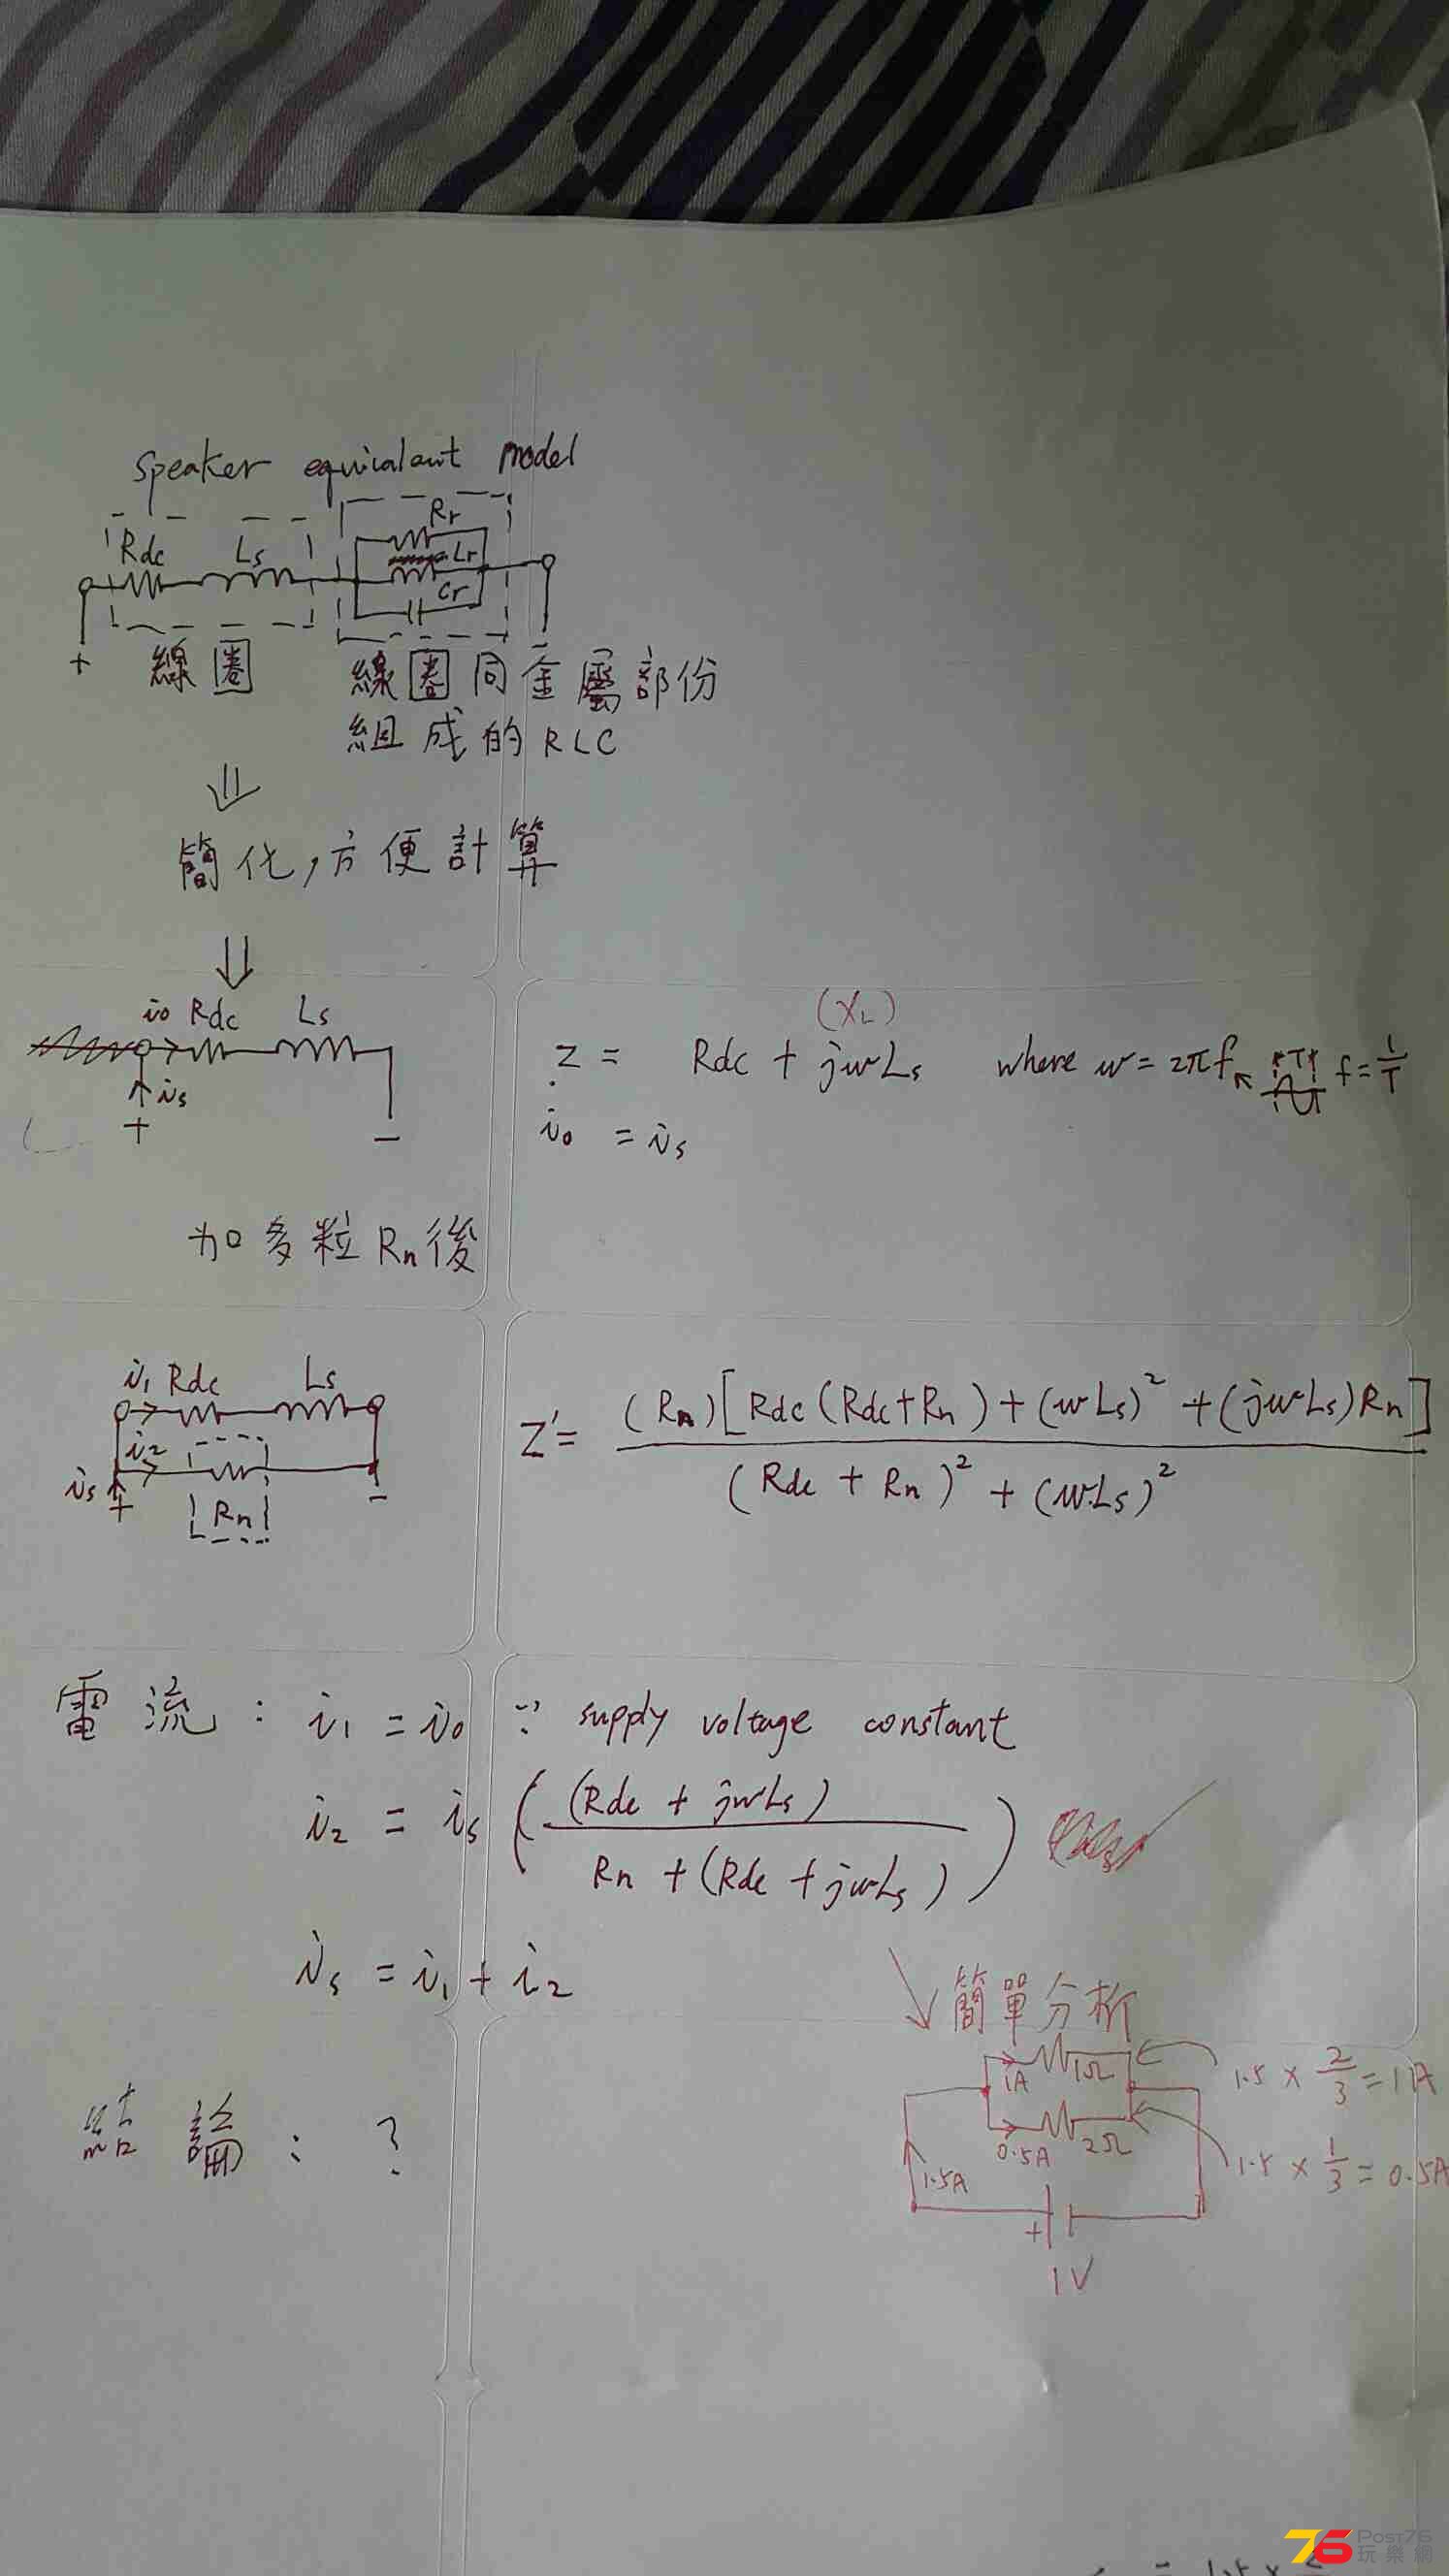 speaker equivalant model
Rdc Ls Rr
Lr
Cr
+ -
線圈 線圈同金屬部份
組成的RLC
⇓
簡化,方便計算
⇓
i₀ Rdc Ls
↑is
+ -
(XL)
Z = Rdc + jwLs where w = 2πf T f = 1/T
i₀ = is
加多粒Rn後
i₁ Rdc Ls
i₂
is + -
Rn
Z' = (Rn)[Rdc(Rdc+Rn)+(wLs)²+(jwLs)Rn] / (Rdc + Rn)² + (wLs)²
電流: i₁ = i₀ ∵ supply voltage constant
i₂ = is ( (Rdc + jwLs) / Rn + (Rdc + jwLs) )
is = i₁ + i₂
簡單分析
1A 1Ω 1.5 × 2/3 = 1A
0.5A 2Ω 1.5 × 1/3 = 0.5A
1.5A
+
1V
結論: ?
76 POST76
玩樂網